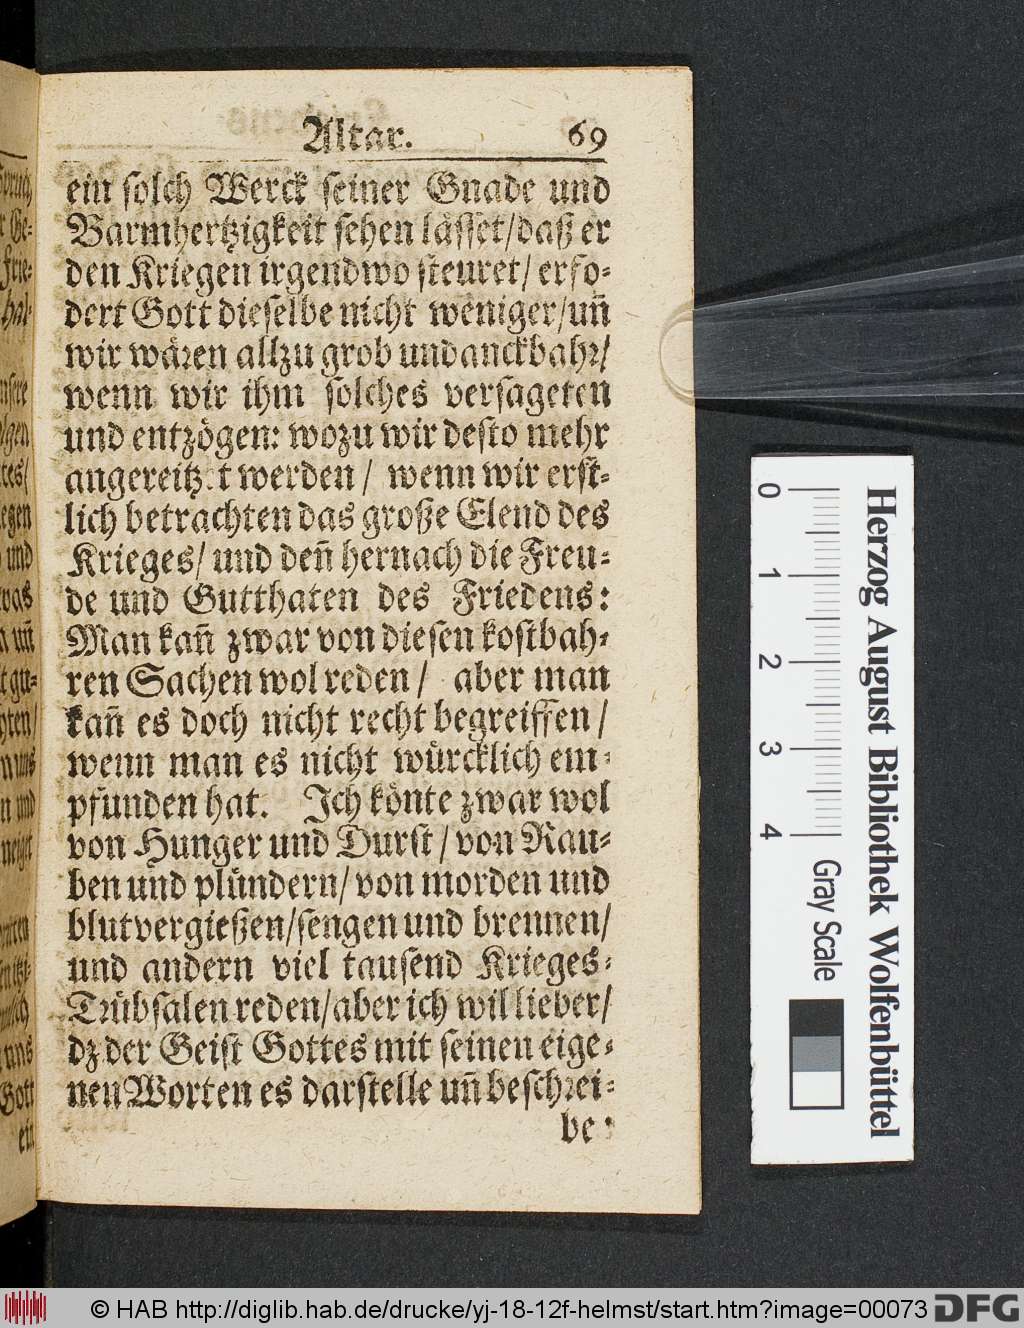 Altar. 69
ein solch Werck seiner Gnade und
Barmhertzigkeit sehen lässet/daß er
den Kriegen irgendwo steuret/ erfo-
dert Gott dieselbe nicht weniger/uñ
wir wären allzu grob undanckbahr/
wenn wir ihm solches versageten
und entzögen: wozu wir desto mehr
angereitzet werden/ wenn wir erst-
lich betrachten das große Elend des
Krieges/ und deñ hernach die Freu-
de und Gutthaten des Friedens:
Man kañ zwar von diesen kostbah-
ren Sachen wol reden/ aber man
kañ es doch nicht recht begreiffen/
wenn man es nicht würcklich em-
pfunden hat. Ich könte zwar wol
von Hunger und Durst/von Rau-
ben und plündern/von morden und
blutvergießen/sengen und brennen/
und andern viel tausend Krieges-
Trübsalen reden/aber ich wil lieber/
dz der Geist Gottes mit seinen eige-
nen Worten es darstelle uñ beschrei-
be:
0 1 2 3 4
Gray Scale
Herzog August Bibliothek Wolfenbüttel
© HAB http://diglib.hab.de/drucke/yj-18-12f-helmst/start.htm?image=00073 DFG